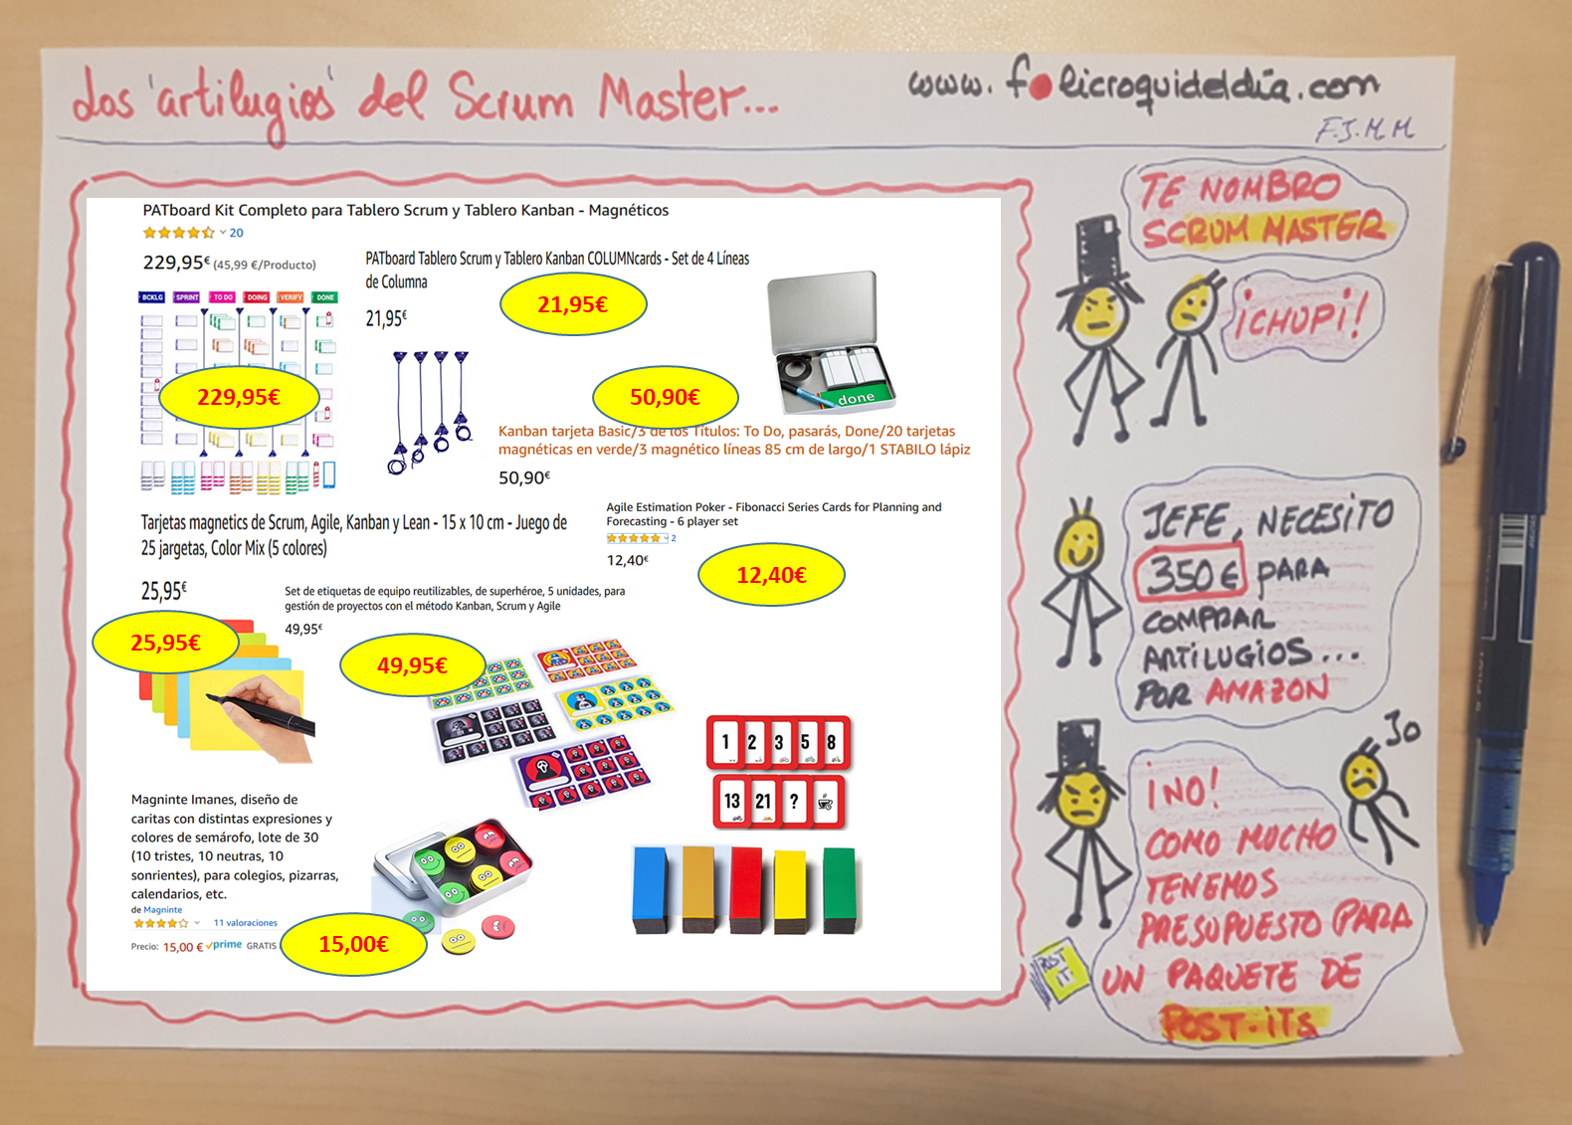 Los 'artilugios' del Scrum Master...
www.folicroquideldía.com
F.J.M.M
PATboard Kit Completo para Tablero Scrum y Tablero Kanban - Magnéticos
20
229,95€ (45,99 €/Producto)
BCKLG SPRINT TO DO DOING VERIFY DONE
229,95€
PATboard Tablero Scrum y Tablero Kanban COLUMNcards - Set de 4 Líneas
de Columna
21,95€
21,95€
done
50,90€
Kanban tarjeta Basic/3 de los Titulos: To Do, pasarás, Done/20 tarjetas
magnéticas en verde/3 magnético líneas 85 cm de largo/1 STABILO lápiz
50,90€
Tarjetas magnetics de Scrum, Agile, Kanban y Lean - 15 x 10 cm - Juego de
25 jargetas, Color Mix (5 colores)
25,95€
25,95€
Agile Estimation Poker - Fibonacci Series Cards for Planning and
Forecasting - 6 player set
2
12,40€
12,40€
Set de etiquetas de equipo reutilizables, de superhéroe, 5 unidades, para
gestión de proyectos con el método Kanban, Scrum y Agile
49,95€
49,95€
1 2 3 5 8
13 21 ?
Magninte Imanes, diseño de
caritas con distintas expresiones y
colores de semárofo, lote de 30
(10 tristes, 10 neutras, 10
sonrientes), para colegios, pizarras,
calendarios, etc.
de Magninte
11 valoraciones
Precio: 15,00 € prime GRATIS
15,00€
TE NOMBRO
SCRUM MASTER
¡CHUPI!
JEFE, NECESITO
350€ PARA
COMPRAR
ARTILUGIOS...
POR AMAZON
JO
¡NO!
COMO MUCHO
TENEMOS
PRESUPUESTO PARA
UN PAQUETE DE
POST-ITS
POST
IT